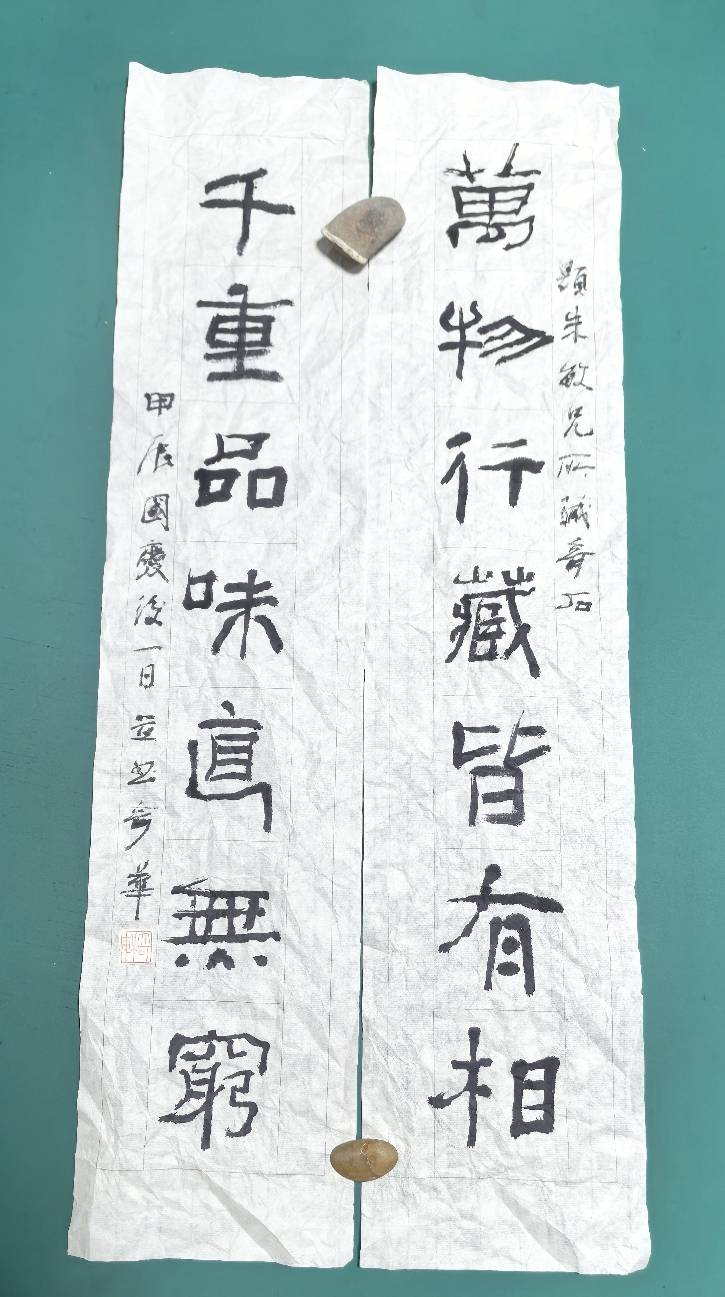 題朱敏兄所藏奇石
萬物行藏皆有相
千重品味直無窮
甲辰國慶後一日並書 華